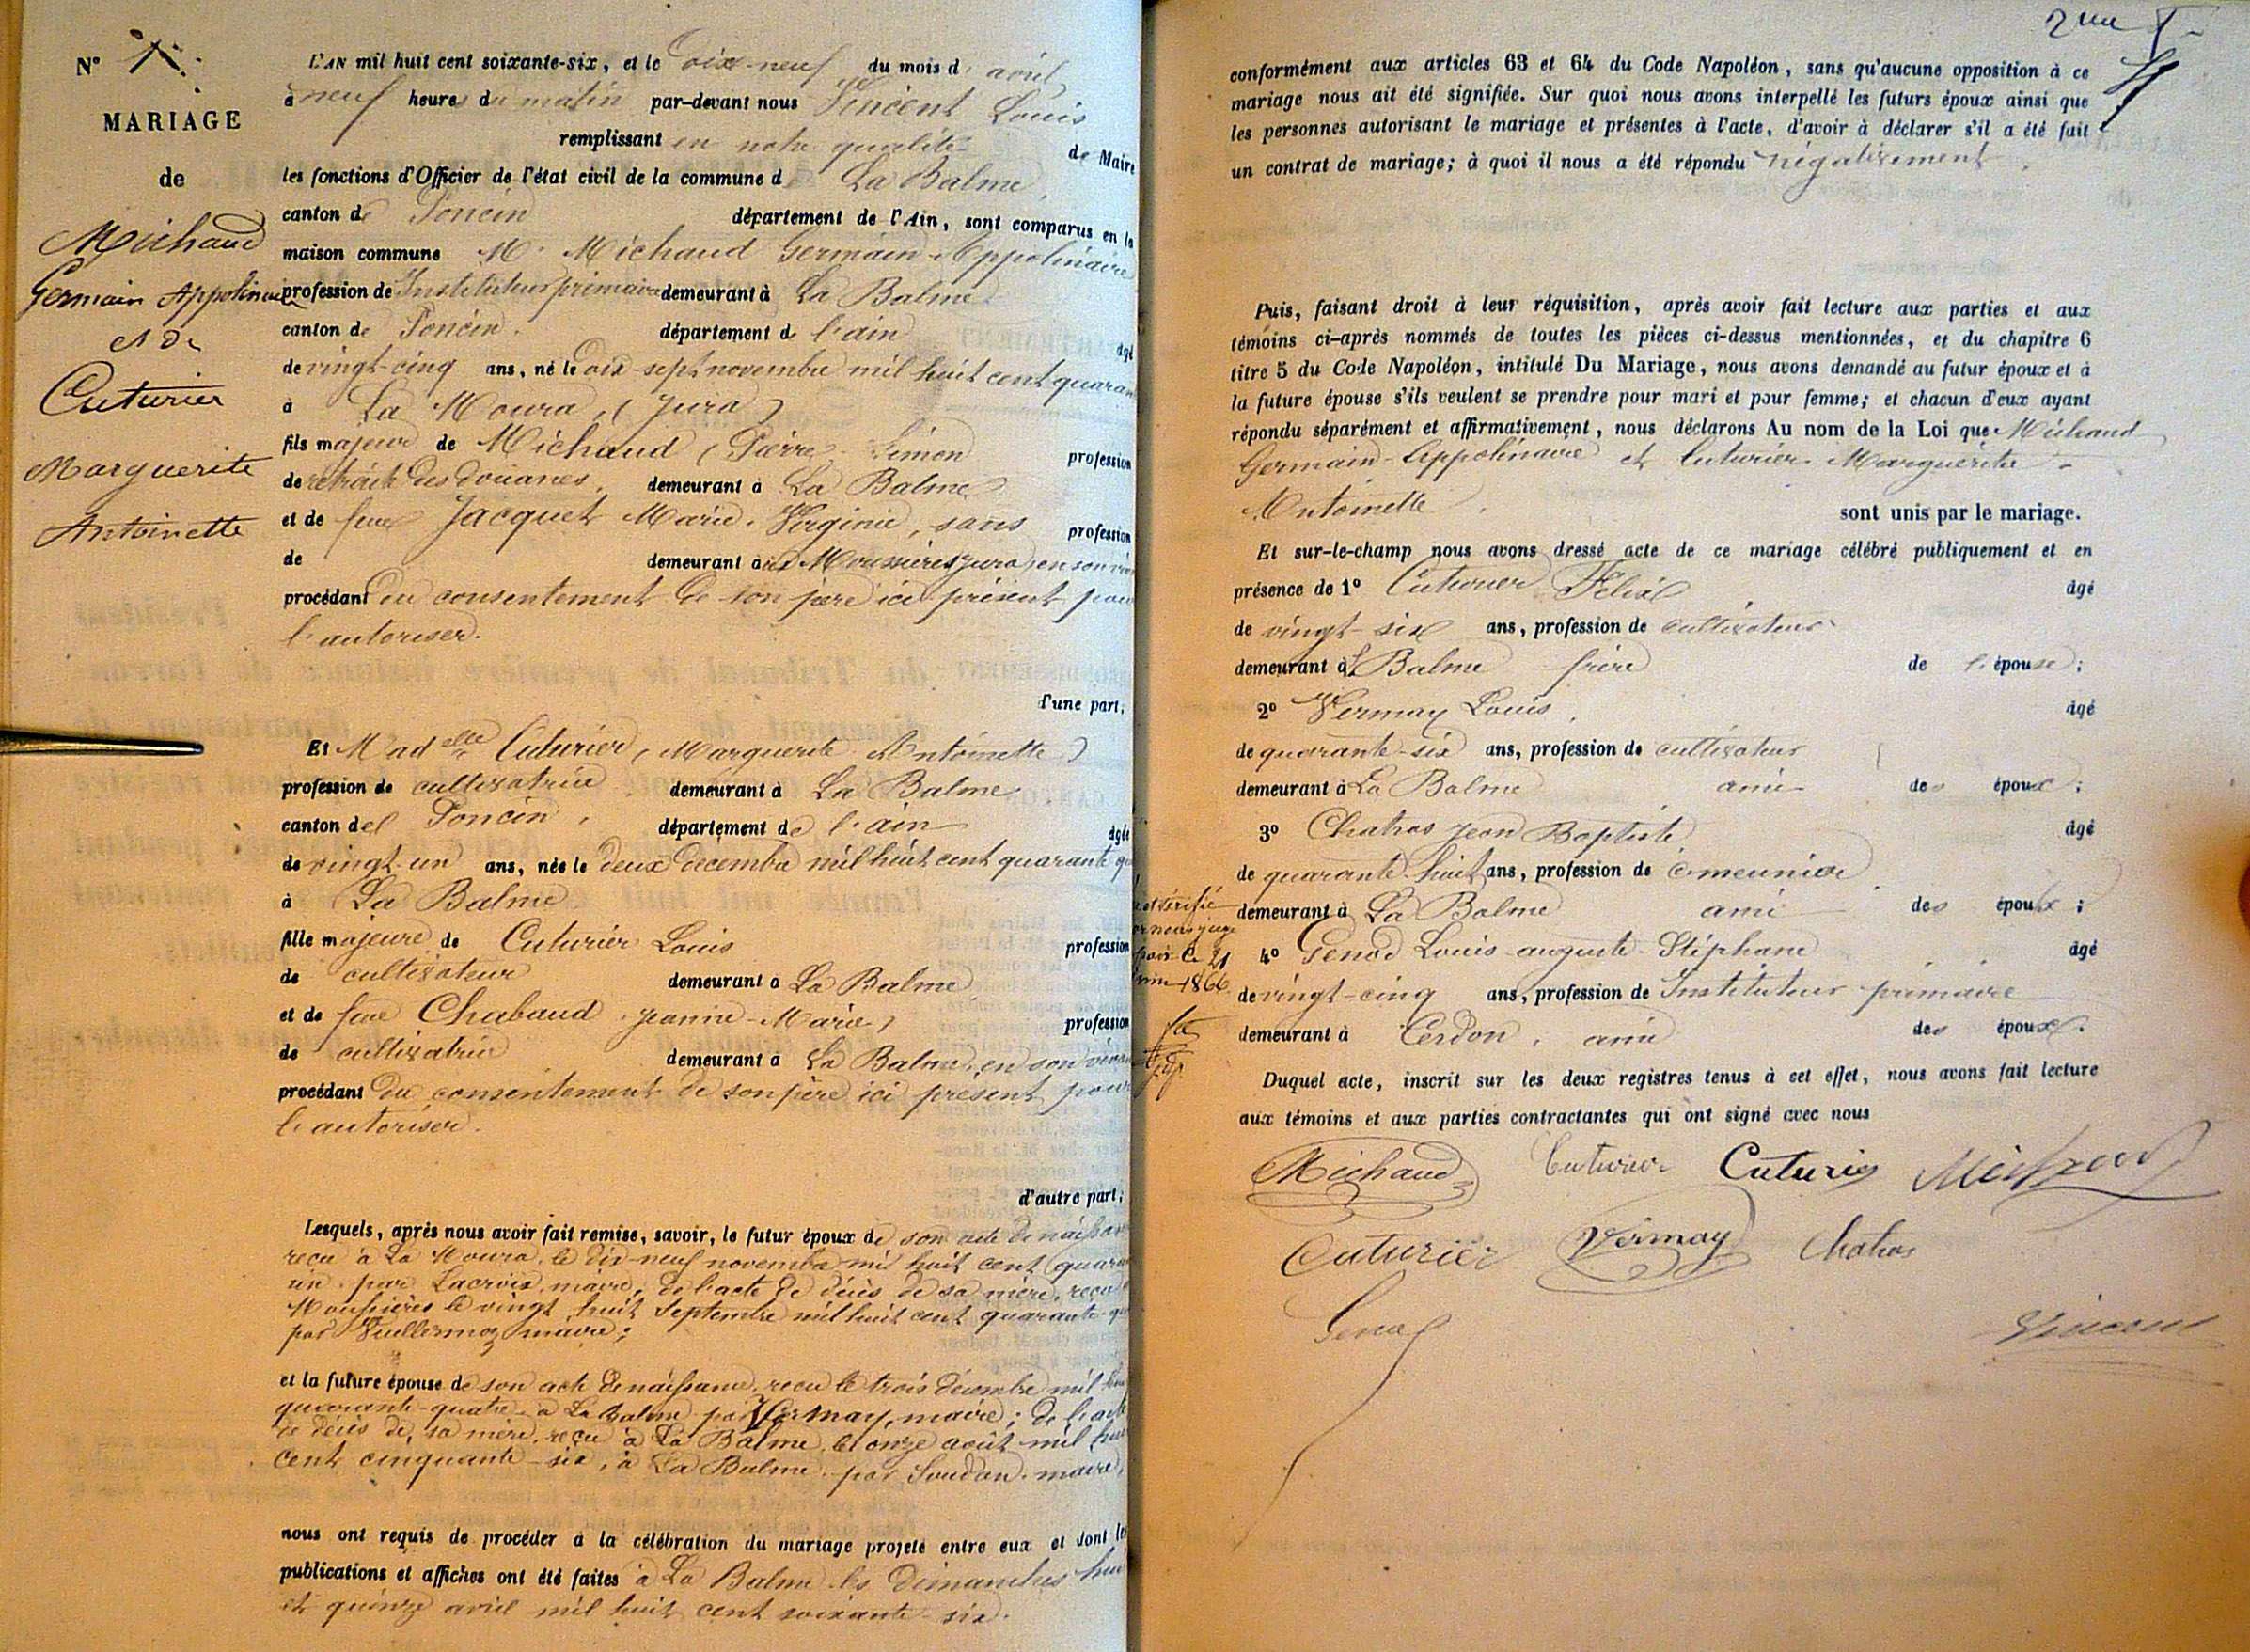 N°
MARIAGE
de
Michaud
Germain Appolinaire
et de
Cuturier
Marguerite
Antoinette
L'AN mil huit cent soixante-six, et le dix-neuf du mois d'avril
à neuf heures du matin par-devant nous Vincent Louis
remplissant en notre qualité de Maire
les fonctions d'Officier de l'état civil de la commune d La Balme
canton de Poncin département de l'Ain, sont comparus en la
maison commune M. Michaud Germain Appolinaire
profession de Instituteur primaire demeurant à La Balme
canton de Poncin département de l'ain âgé
de vingt-cinq ans, né le dix-sept novembre mil huit cent quaran
à La Moura, (Jura)
fils majeur de Michaud (Pierre Simon profession
de retraité des douanes, demeurant à La Balme
et de feue Jacquet Marie Virginie, sans profession
de demeurant aux Moussières Jura, en son viv
procédant du consentement de son père ici présent pour
l'autoriser.
d'une part;
Et Madelle Cuturier, (Marguerite Antoinette)
profession de cultivatrice demeurant à La Balme
canton de Poncin, département de l'ain âgée
de vingt-un ans, née le deux décembre mil huit cent quarante qu
à La Balme
fille majeure de Cuturier Louis profession
de cultivateur demeurant à La Balme
et de feue Chabaud Jeanne-Marie, profession
de cultivatrice demeurant à La Balme, en son vivan
procédant du consentement de son père ici présent pour
l'autoriser.
d'autre part;
Lesquels, après nous avoir fait remise, savoir, le futur époux de son acte de naissan
reçu à La Moura, le dix-neuf novembre mil huit cent quaran
un, par Lacroix, maire; de l'acte de décès de sa mère, reçu
Moussières le vingt huit Septembre mil huit cent quarante-qu
par Vuillermoz maire;
et la future épouse de son acte de naissance, reçu le trois décembre mil hui
quarante-quatre à La Balme par Vermay, maire; de l'acte
de décès de sa mère, reçu à La Balme, le onze août mil hui
cent cinquante-six, à La Balme par Soudan, maire,
nous ont requis de procéder à la célébration du mariage projeté entre eux et dont les
publications et affiches ont été faites à La Balme les dimanches huit
et quinze avril mil huit cent soixante-six.
conformément aux articles 63 et 64 du Code Napoléon, sans qu'aucune opposition à ce
mariage nous ait été signifiée. Sur quoi nous avons interpellé les futurs époux ainsi que
les personnes autorisant le mariage et présentes à l'acte, d'avoir à déclarer s'il a été fait
un contrat de mariage; à quoi il nous a été répondu négativement
Puis, faisant droit à leur réquisition, après avoir fait lecture aux parties et aux
témoins ci-après nommés de toutes les pièces ci-dessus mentionnées, et du chapitre 6
titre 5 du Code Napoléon, intitulé Du Mariage, nous avons demandé au futur époux et à
la future épouse s'ils veulent se prendre pour mari et pour femme; et chacun d'eux ayant
répondu séparément et affirmativement, nous déclarons Au nom de la Loi que Michaud
Germain-Appolinaire et Cuturier Marguerite
Antoinette.
sont unis par le mariage.
Et sur-le-champ nous avons dressé acte de ce mariage célébré publiquement et en
présence de 1° Cuturier Félix âgé
de vingt-six ans, profession de cultivateur
demeurant à Balme frère de l'épouse;
2° Vermay Louis, âgé
de quarante-six ans, profession de cultivateur
demeurant à La Balme ami des époux;
3° Chatras Jean Baptiste âgé
de quarante-huit ans, profession de meunier
demeurant à La Balme ami des époux;
4° Genod Louis auguste Stéphane âgé
de vingt-cinq ans, profession de Instituteur primaire
demeurant à Cerdon, ami des époux.
Duquel acte, inscrit sur les deux registres tenus à cet effet, nous avons fait lecture
aux témoins et aux parties contractantes qui ont signé avec nous
Michaud Cuturier Cuturier Michaud
Cuturier Vermay Chatras
Genod
Vincent